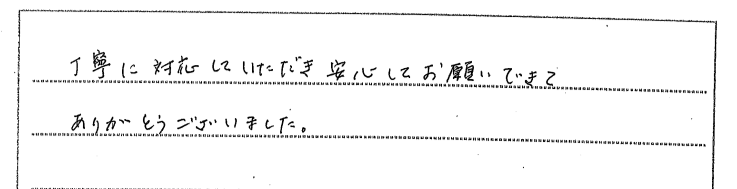 丁寧に対応していただき安心してお願いできて
ありがとうございました。